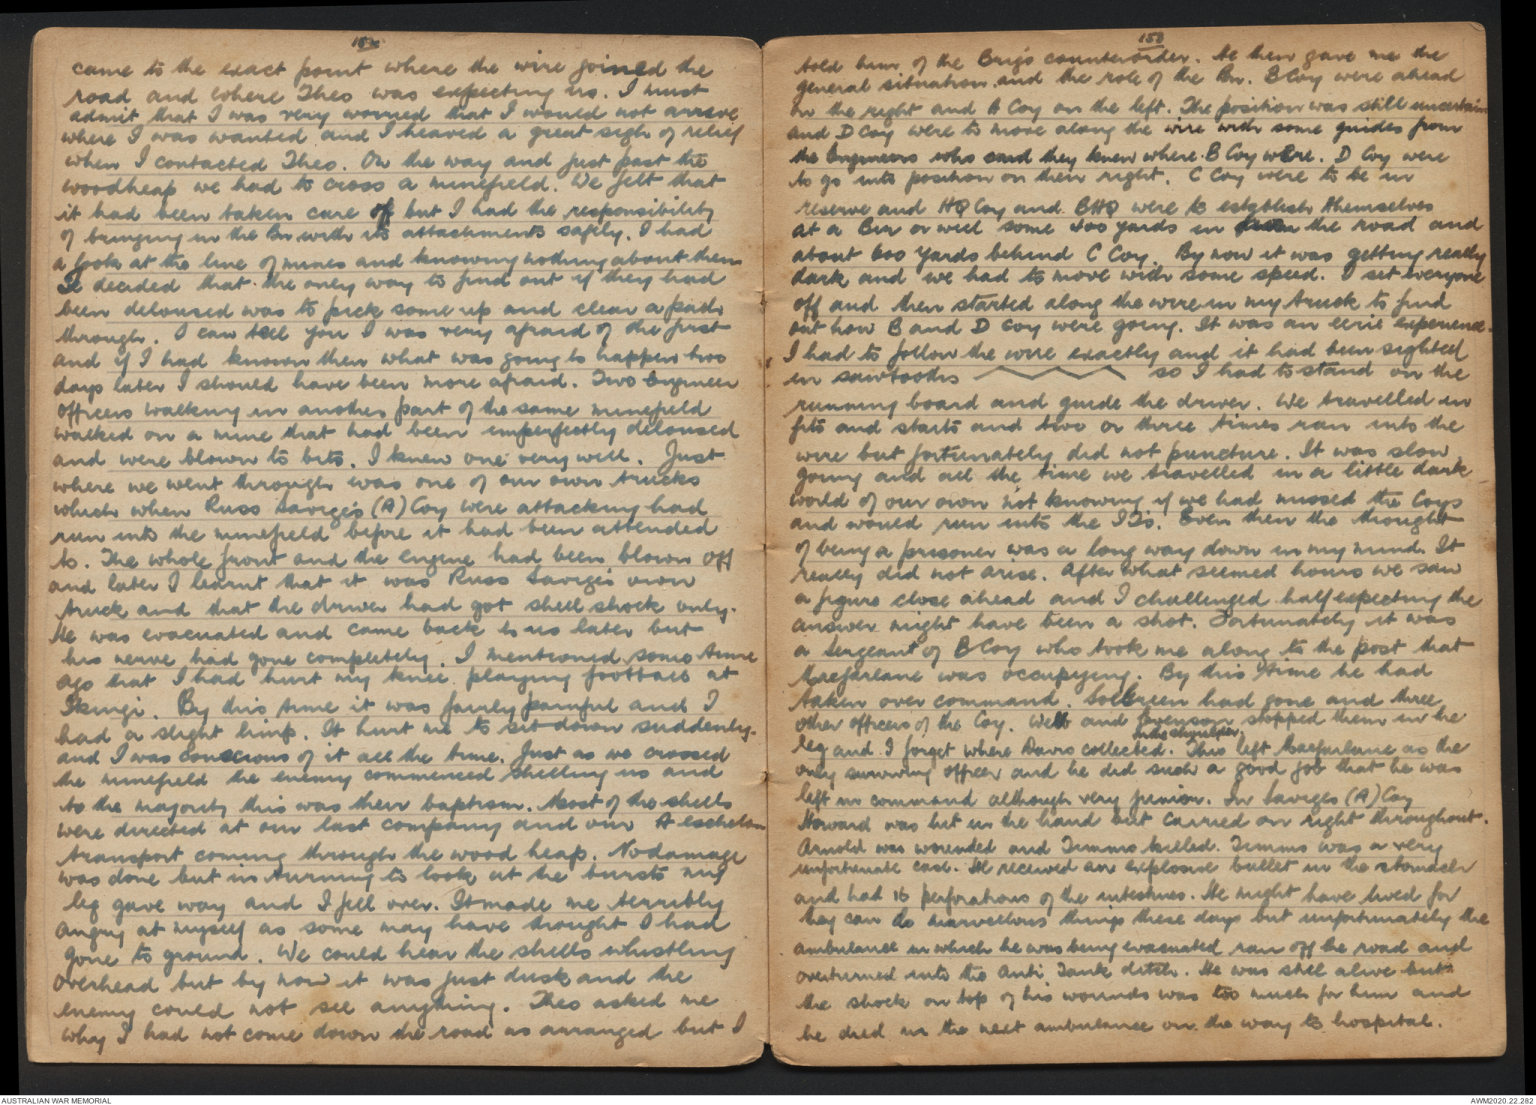 came to the exact point where the wire joined the
road and where Theo was expecting us. I must
admit that I was very worried that I would not arrive
where I was wanted and I heaved a great sigh of relief
when I contacted Theo. On the way and just past the
woodheap we had to cross a minefield. We felt that
it had been taken care of but I had the responsibility
of bringing in the Bn with its attachments safely. I had
a look at the line of mines and knowing nothing about them
I decided that the only way to find out if they had
been deloused was to pick some up and clear a path
through. I can tell you I was very afraid of the first
and if I had known then what was going to happen two
days later I should have been more afraid. Two Engineer
officers walking in another part of the same minefield
walked on a mine that had been imperfectly deloused
and were blown to bits. I knew one very well. Just
where we went through was one of our own trucks
which when Russ Savige's (A) Coy were attacking had
run into the minefield before it had been attended
to. The whole front and the engine had been blown off
and later I learnt that it was Russ Savige's own
truck and that the driver had got shell shock only.
He was evacuated and came back to us later but
his nerve had gone completely. I mentioned some time
ago that I had hurt my knee playing football at
Ikingi. By this time it was fairly painful and I
had a slight limp. It hurt me to sit down suddenly
and I was conscious of it all the time. Just as we crossed
the minefield the enemy commenced shelling us and
to the majority this was their baptism. Most of the shells
were directed at our last company and our A echelon
transport coming through the wood heap. No damage
was done but in turning to look at the bursts my
leg gave way and I fell over. It made me terribly
angry at myself as some may have thought I had
gone to ground. We could hear the shells whistling
overhead but by now it was just dusk and the
enemy could not see anything. Theo asked me
why I had not come down the road as arranged but I
153
told him of the Brig's counterorder. He then gave me the
general situation and the role of the Bn. B Coy were ahead
on the right and A Coy on the left. The position was still uncertain
and D Coy were to move along the wire with some guides from
the Engineers who said they knew where B Coy were. D Coy were
to go into position on their right. C Coy were to be in
reserve and HQ Coy and BHQ were to establish themselves
at a Bir or well some 400 yards in from the road and
about 600 yards behind C Coy. By now it was getting really
dark and we had to move with some speed. I set everyone
off and then started along the wire in my truck to find
out how B and D Coy were going. It was an eerie experience.
I had to follow the wire exactly and it had been sighted
in sawtooths so I had to stand on the
running board and guide the driver. We travelled in
fits and starts and two or three times ran into the
wire but fortunately did not puncture. It was slow
going and all the time we travelled in a little dark
world of our own not knowing if we had missed the Coys
and would run into the I Is. Even then the thought
of being a prisoner was a long way down in my mind. It
really did not arise. After what seemed hours we saw
a figure close ahead and I challenged half expecting the
answer might have been a shot. Fortunately it was
a Sergeant of B Coy who took me along to the post that
Macfarlane was occupying. By this time he had
taken over command. had gone and three
other officers of the Coy. and stopped them in the
in the shoulder
leg and I forget where Davis collected. This left Macfarlane as the
only surviving officer and he did such a good job that he was
left in command although very junior. In Saviges (A) Coy
Howard was hit in the hand but carried on right throughout.
Arnold was wounded and Timms killed. Timms was a very
unfortunate case. He received an explosive bullet in the stomach
and had 16 perforations of the intestines. He might have lived for
they can do marvellous things these days but unfortunately the
ambulance in which he was being evacuated ran off the road and
overturned into the Anti Tank ditch. He was still alive but
the shock on top of his wounds was too much for him and
he died in the next ambulance on the way to hospital.
AUSTRALIAN WAR MEMORIAL
AWM2020.22.282